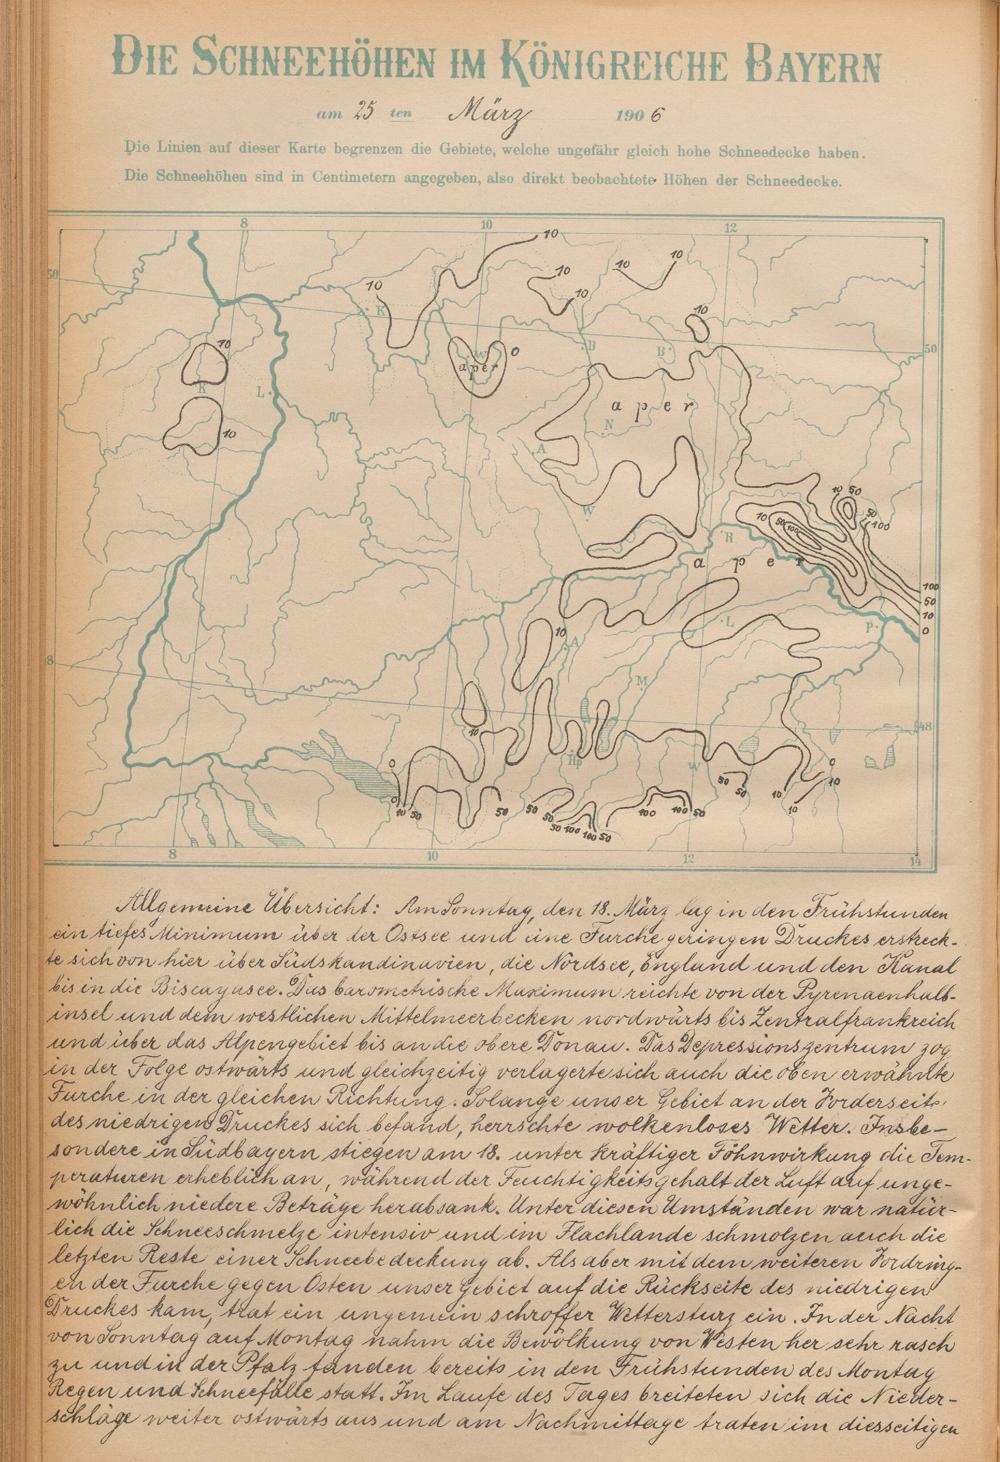 DIE SCHNEEHÖHEN IM KÖNIGREICHE BAYERN
am 25 ten März 1906
Die Linien auf dieser Karte begrenzen die Gebiete, welche ungefähr gleich hohe Schneedecke haben.
Die Schneehöhen sind in Centimetern angegeben, also direkt beobachtete Höhen der Schneedecke.
8 10 12
10
10 10 10
50 10
10
K
10
B B 50
10 W 0
aper
K L
aper
10 N
A
10 50
W 50
10 50 100 100
R
aper
100
50
10
0
10 L P
A
8
M
10 48
0 W 0
50 50 10
10 50 50 50 50 50 100 100 50 100 100 50 10
8 10 12 14
Allgemeine Übersicht: Am Sonntag, den 18. März lag in den Frühstunden
ein tiefes Minimum über der Ostsee und eine Furche geringen Druckes erstreck-
te sich von hier über Südskandinavien, die Nordsee, England und den Kanal
bis in die Biscayasee. Das barometrische Maximum reichte von der Pyrenaenhalb-
insel und dem westlichen Mittelmeerbecken nordwärts bis Zentralfrankreich
und über das Alpengebiet bis an die obere Donau. Das Depressionszentrum zog
in der Folge ostwärts und gleichzeitig verlagerte sich auch die oben erwähnte
Furche in der gleichen Richtung. Solange unser Gebiet an der Vorderseite
des niedrigen Druckes sich befand, herrschte wolkenloses Wetter. Insbe-
sondere in Südbayern stiegen am 18. unter kräftiger Föhnwirkung die Tem-
peraturen erheblich an, während der Feuchtigkeitsgehalt der Luft auf unge-
wöhnlich niedere Beträge herabsank. Unter diesen Umständen war natür-
lich die Schneeschmelze intensiv und im Flachlande schmolzen auch die
letzten Reste einer Schneebedeckung ab. Als aber mit dem weiteren Vordring-
en der Furche gegen Osten unser Gebiet auf die Rückseite des niedrigen
Druckes kam, trat ein ungemein schroffer Wettersturz ein. In der Nacht
von Sonntag auf Montag nahm die Bewölkung von Westen her sehr rasch
zu und in der Pfalz fanden bereits in den Frühstunden des Montag
Regen und Schneefälle statt. Im Laufe des Tages breiteten sich die Nieder-
schläge weiter ostwärts aus und am Nachmittage traten im diesseitigen